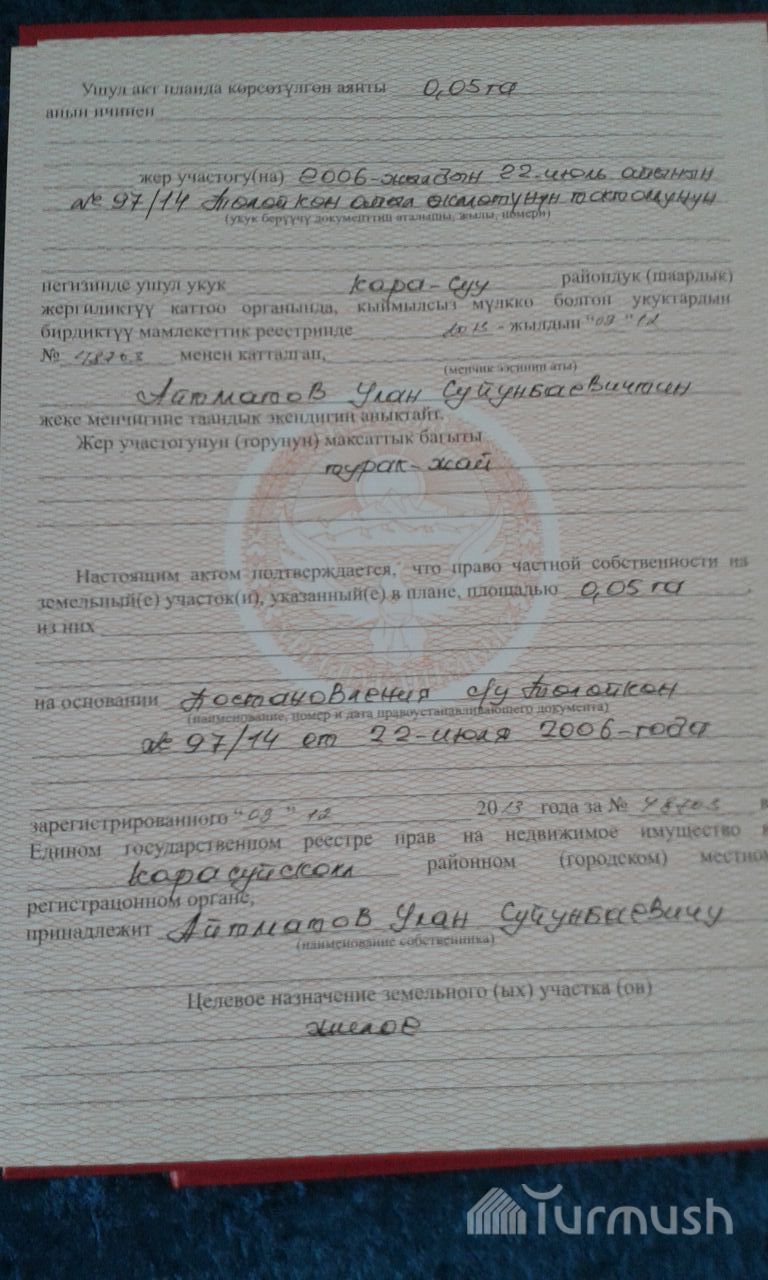 Ушул акт планда көрсөтүлгөн аянты 0,05 га
анын ичинен
жер участогу(на) 2006-жылдын 22-июль айынын
№ 97/14 Төлөйкөн айыл өкмөтүнүн токтомунун
(укук берүүчү документтин аталышы, жылы, номери)
негизинде ушул укук Кара-Суу райондук (шаардык)
жергиликтүү каттоо органында, кыймылсыз мүлккө болгон укуктардын
бирдиктүү мамлекеттик реестринде 2013 - жылдын "09" 12
№ 48703 менен катталган,
(менчик ээсинин аты)
Айтматов Улан Суйунбаевичтин
жеке менчигине таандык экендигин аныктайт.
Жер участогунун (торунун) максаттык багыты
турак-жай
Настоящим актом подтверждается, что право частной собственности на
земельный(е) участок(и), указанный(е) в плане, площадью 0,05 га ,
из них
на основании Постановления с/у Төлөйкөн
(наименование, номер и дата правоустанавливающего документа)
№ 97/14 от 22-июля 2006-года
зарегистрированного "09" 12 2013 года за № 48703 в
Едином государственном реестре прав на недвижимое имущество в
Карасуйском районном (городском) местном
регистрационном органе,
принадлежит Айтматов Улан Суйунбаевичу
(наименование собственника)
Целевое назначение земельного (ых) участка (ов)
жилое
Turmush